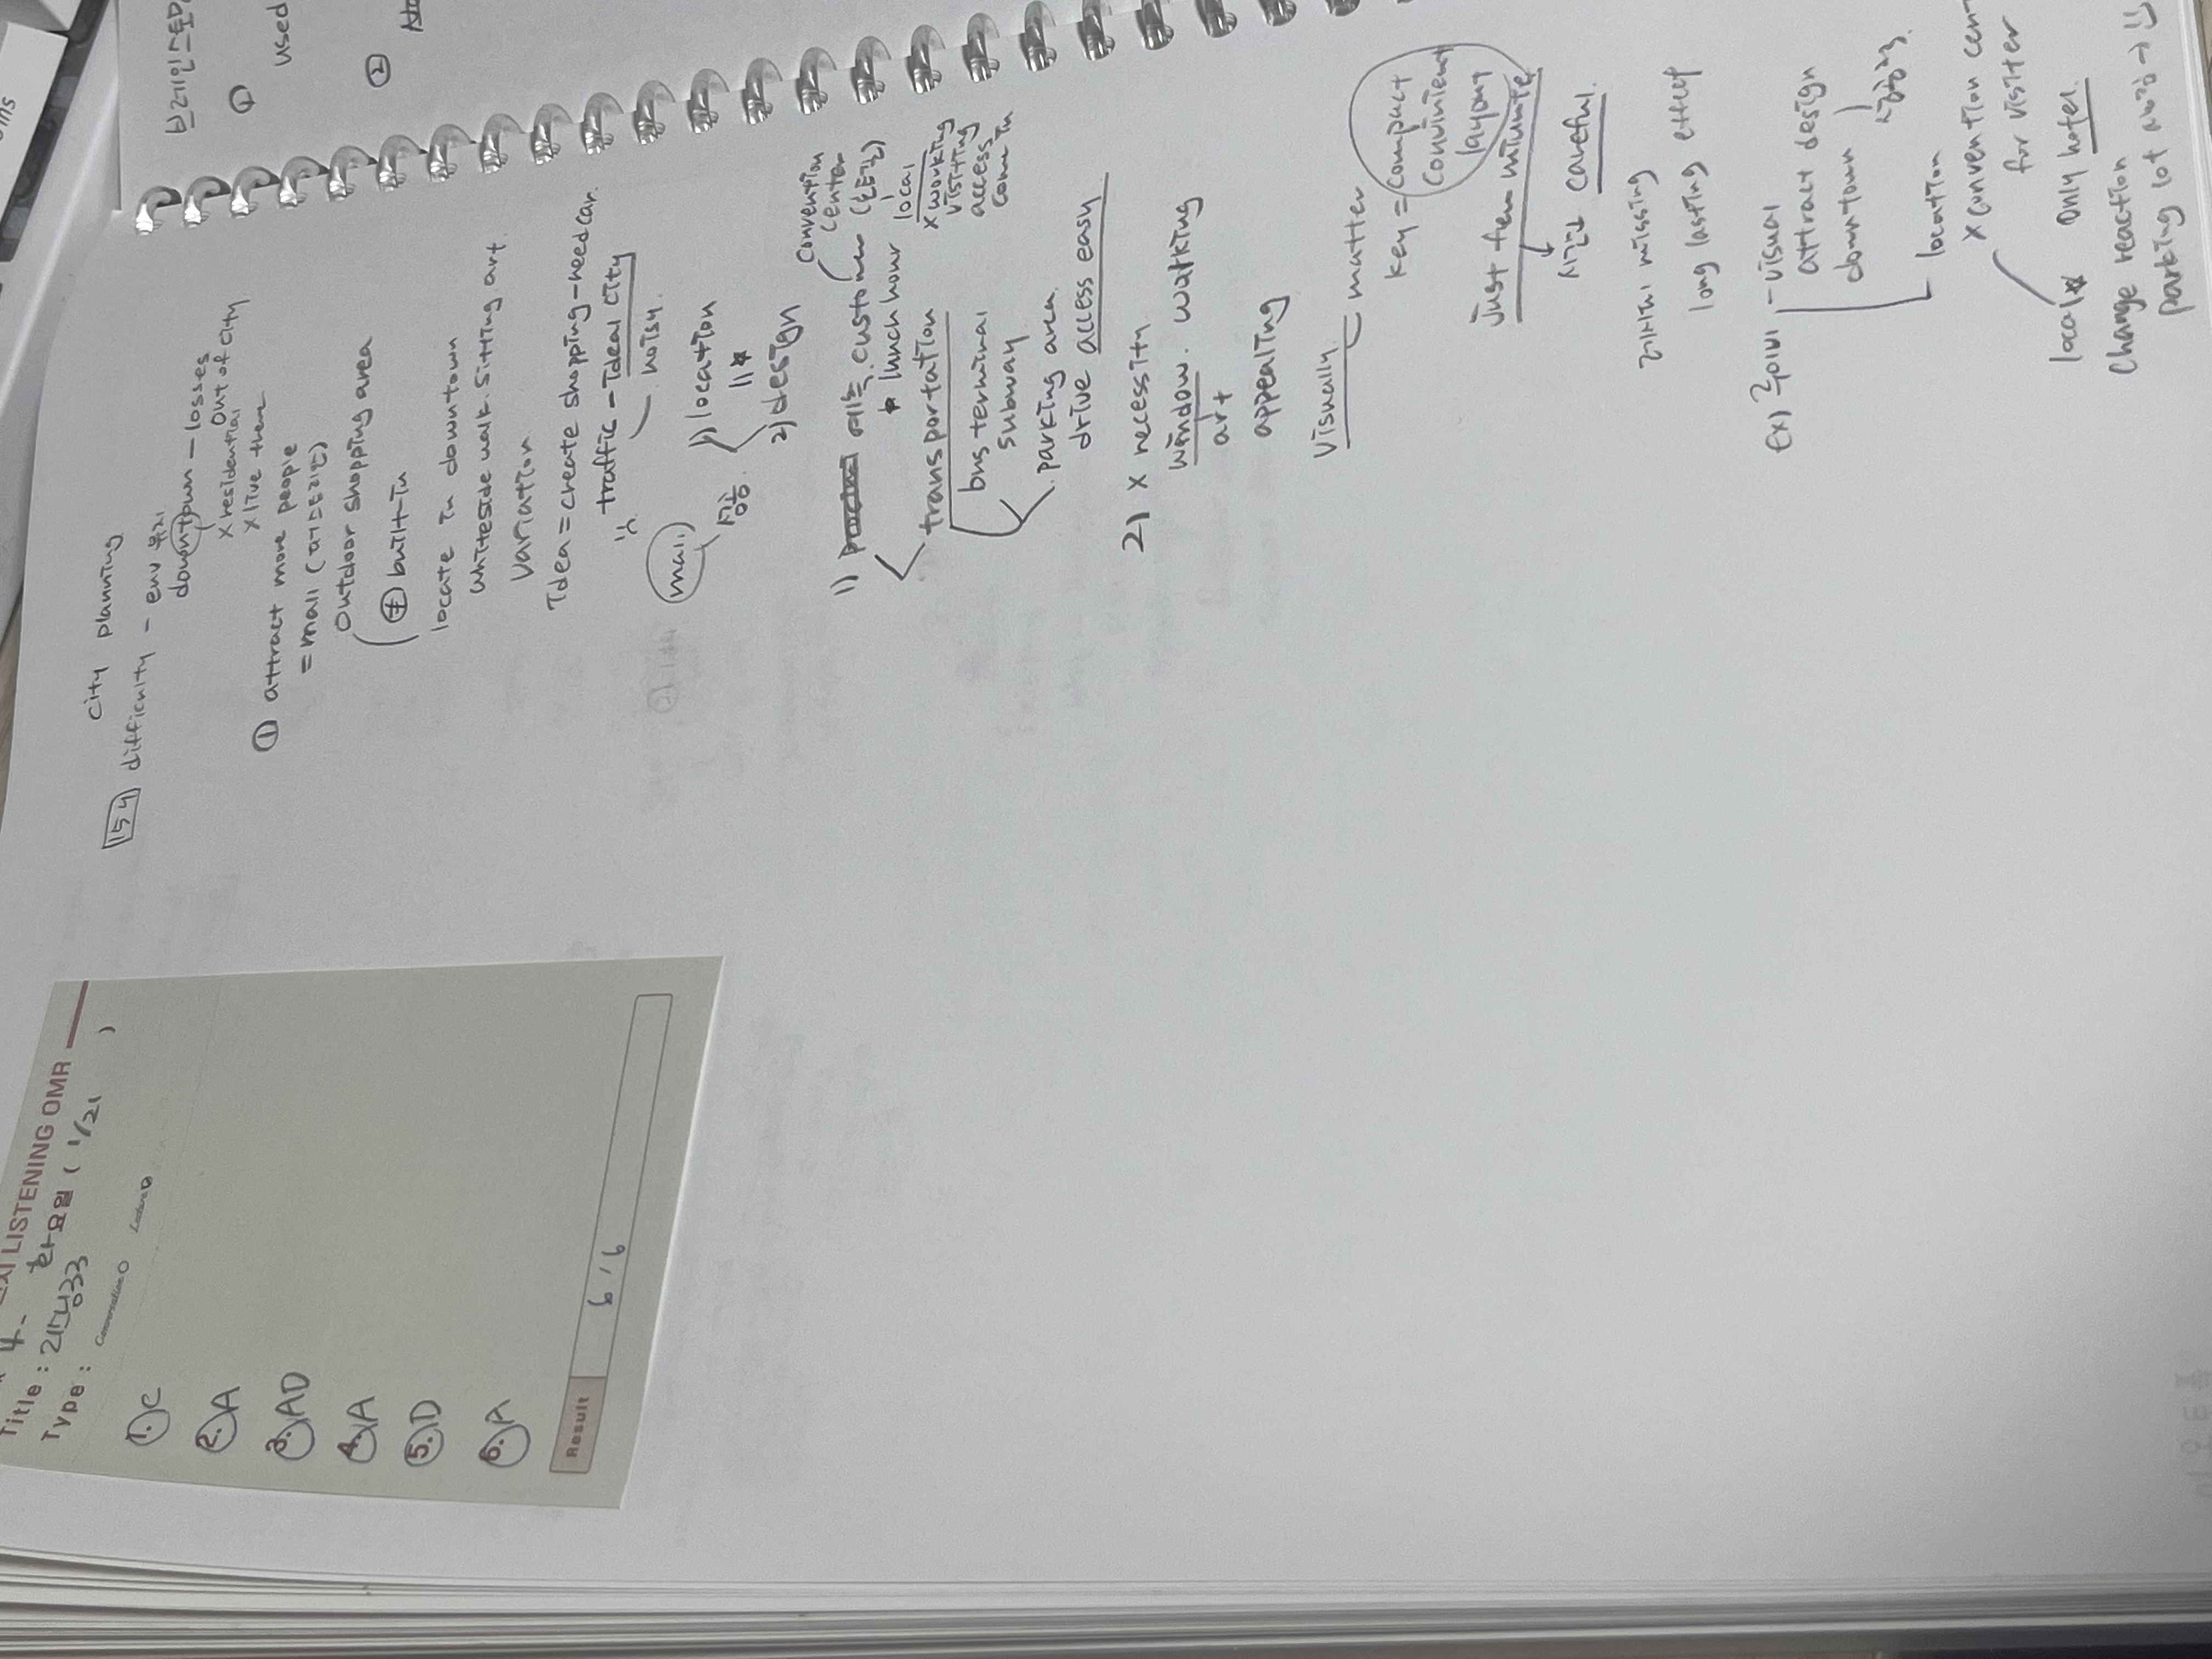 city planning
154 difficulty - env 유지
downtown - losses
x residential out of city
x live there
① attract more people
= mall (
outdoor shopping area
④ built-in
locate in downtown
walk. sitting art.
variation
Idea = create shopping - need car.
traffic - ideal city
noisy.
mall
성공. 1) location
1)☆
2) design
1) custo
convention
center
local
x working
visiting
access
com in
lunch hour
transportation
bus terminal
subway
parking area.
drive access easy
2) x necessity
window. walking
art
appealing
visually
matter
key = compact
convinient
layout
Just few minute
시간↓ careful.
missing
long lasting effect
ex) - visual
attract design
downtown
location
x convention cen
for visiter
local☆ only hotel.
change reaction
parking lot
LISTENING OMR
4-
화요일 (1/21 )
Title : 리스닝033
Type : Conversation Lecture
1. C
2. A
3. AD
4. A
5. D
6. A
Result 6 / 6
used
②
①